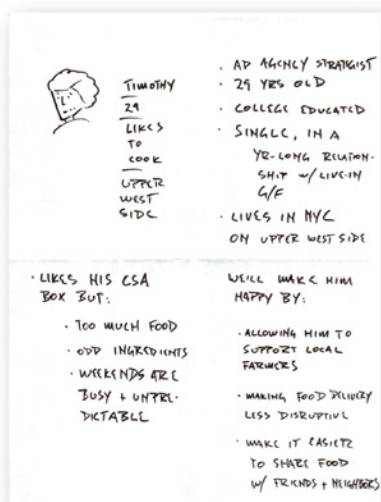 TIMOTHY
29
LIKES
TO
COOK
UPPER
WEST
SIDE
• AD AGENCY STRATEGIST
• 29 YRS OLD
• COLLEGE EDUCATED
• SINGLE, IN A
YR-LONG RELATION-
SHIP W/ LIVE-IN
G/F
• LIVES IN NYC
ON UPPER WEST SIDE
• LIKES HIS CSA
BOX BUT:
• TOO MUCH FOOD
• ODD INGREDIENTS
• WEEKENDS ARE
BUSY + UNPRE-
DICTABLE
WE'LL MAKE HIM
HAPPY BY:
• ALLOWING HIM TO
SUPPORT LOCAL
FARMERS
• MAKING FOOD DELIVERY
LESS DISRUPTIVE
• MAKE IT EASIER
TO SHARE FOOD
W/ FRIENDS + NEIGHBORS